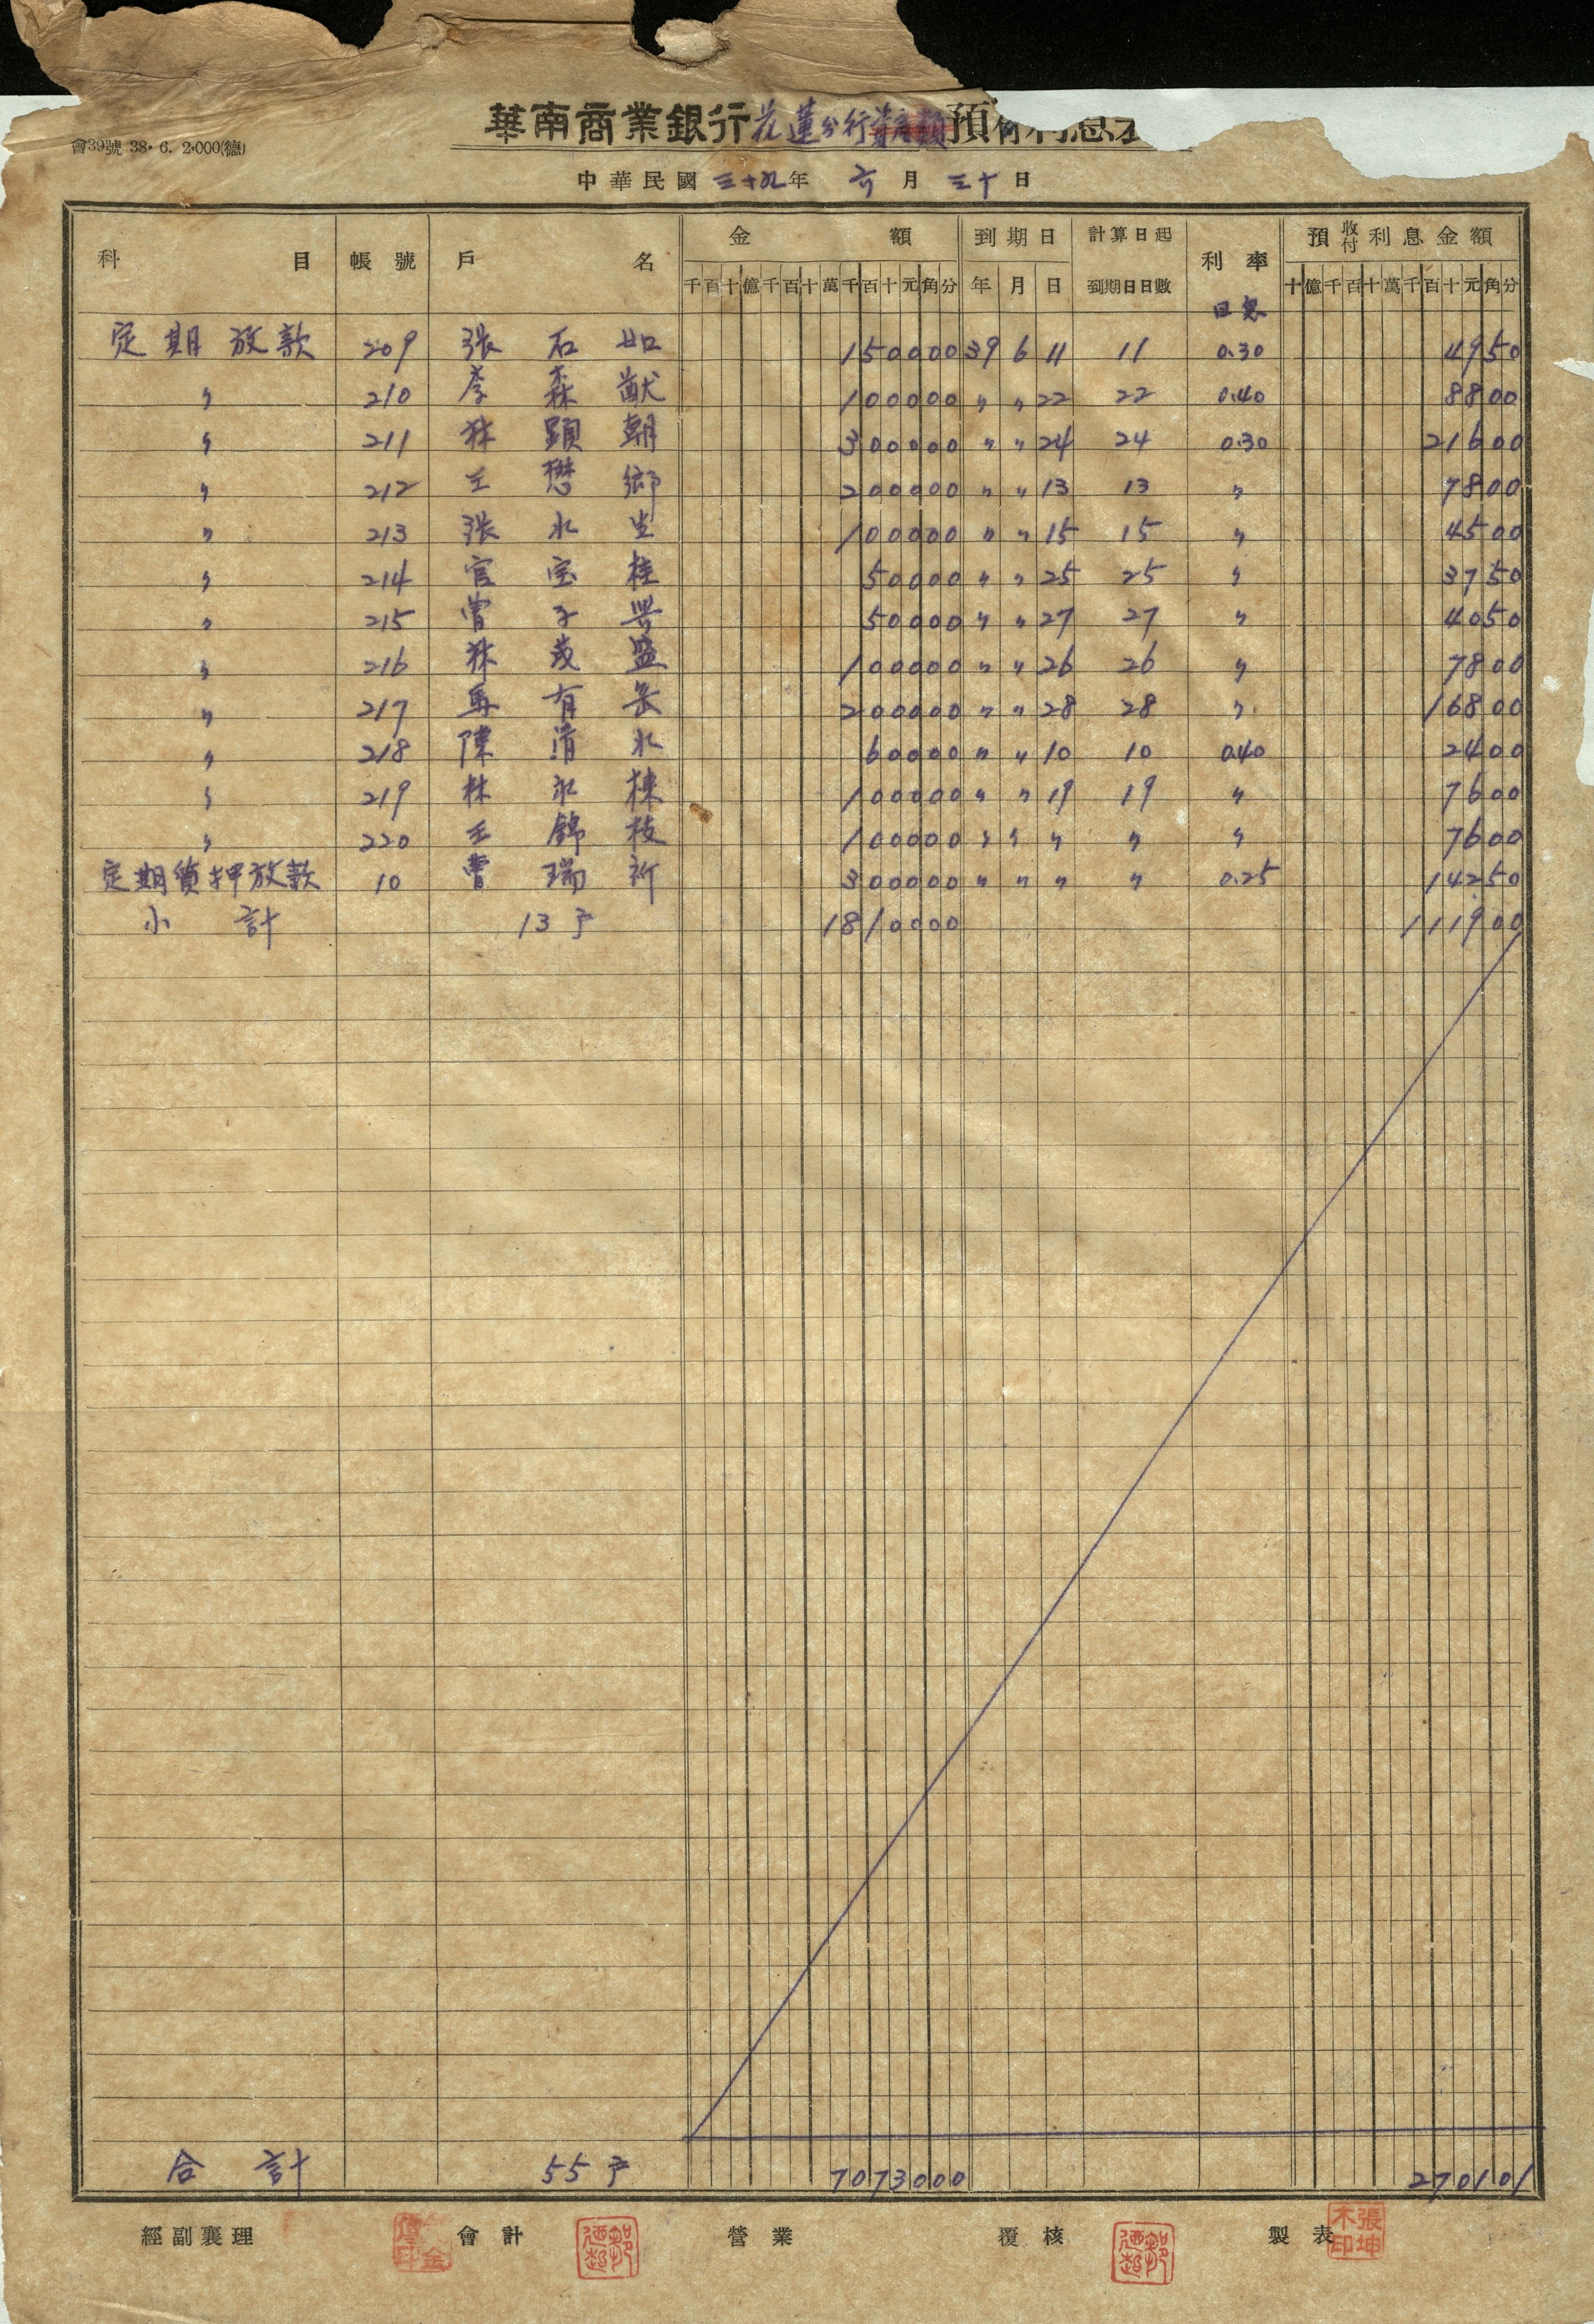 華南商業銀行花蓮分行 預
會39號 38. 6. 2.000(德)
中華民國 三十九年 六月 三十日
科目 帳號 戶名 金額 到期日 計算日起到期日日數 利率 預收付利息金額
千百十億千百十萬千百十元角分 年 月 日 十億千百十萬千百十元角分
日息
定期放款 209 張石如 150000 39 6 11 11 0.30 4950
〃 210 李森猷 100000 〃 〃 22 22 0.40 8800
〃 211 林顕朝 300000 〃 〃 24 24 0.30 21600
〃 212 王懋鄉 200000 〃 〃 13 13 〃 7800
〃 213 張水生 100000 〃 〃 15 15 〃 4500
〃 214 官宝桂 50000 〃 〃 25 25 〃 3750
〃 215 曾子兴 50000 〃 〃 27 27 〃 4050
〃 216 林茂盛 100000 〃 〃 26 26 〃 7800
〃 217 馬有岳 200000 〃 〃 28 28 〃 16800
〃 218 陳清水 60000 〃 〃 10 10 0.40 2400
〃 219 林永棟 100000 〃 〃 19 19 〃 7600
〃 220 王錦枝 100000 〃 〃 〃 〃 〃 7600
定期質押放款 10 曹瑞 300000 〃 〃 〃 〃 0.25 14250
小計 13戶 1810000 111900
合計 55戶 7073000 270101
經副襄理 會計 營業 覆核 製表
張坤木印